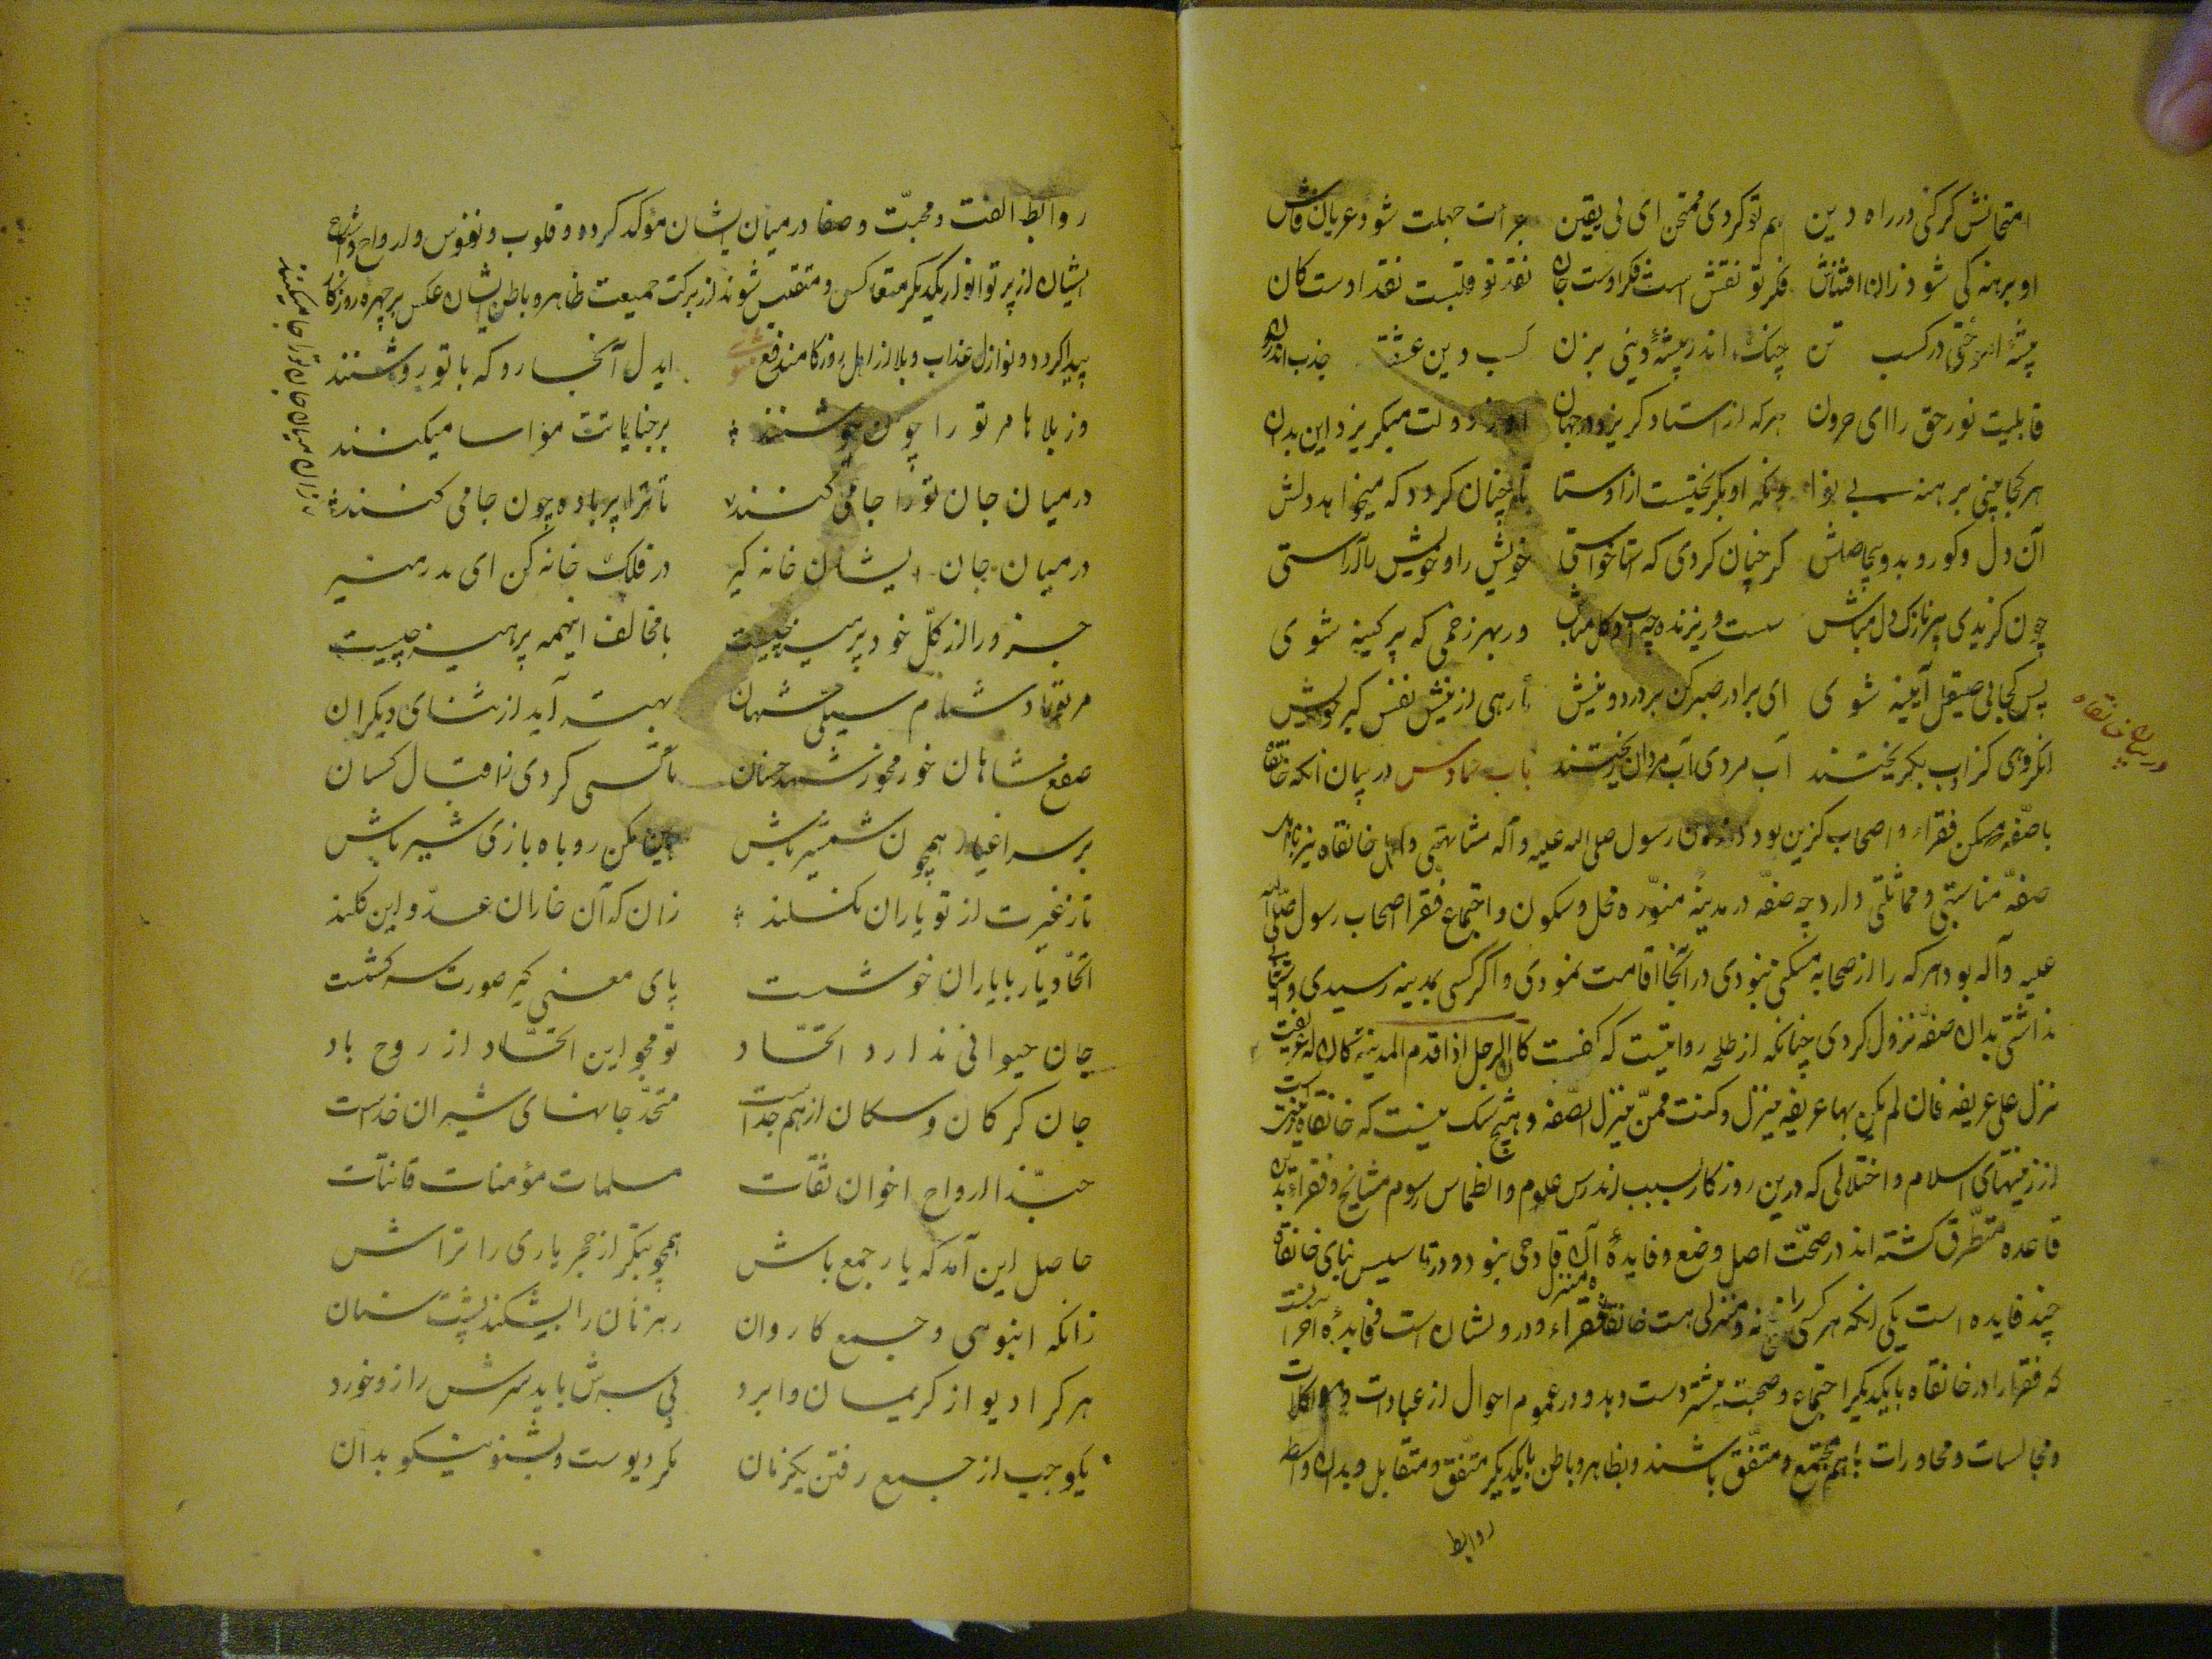 امتحانش گر کنی در راه دین هم تو گردی ممتحن ای بی یقین جرأت جهلت شود عریان و فاش
او برهنه کی شود زان افتتاش فکر تو نقش است فکر اوست جان نقد تو قلبست نقد اوست کان
پیشهٔ آموختی در کسب تن چنگ اندر پیشهٔ دینی بزن کسب دین عشقست جذب اندرون
قابلیت نور حق را ای حرون هرکه از استاد گریزد در جهان او ز دولت میگریزد این بدان
هر کجا بینی برهنه بی نوا دانکه او بگریختست از اوستا تا چنان گردد که میخواهد دلش
آن دل و کور و بد و بیحاصلش گر چنان گردی که استا خواستی خویش را و خویش را آراستی
چون گزیدی پیر نازک دل مباش سست و ریزنده چو آب و گل مباش ور بهر زخمی که پر کینه شوی
پس کجا بی صیقل آیینه شوی ای برادر صبر کن بر درد و نیش تا رهی از نیش نفس گبر خویش
انگروهی کز ادب بگریختند آب مردی آب مردان ریختند باب سادس در بیان آنکه خانقاه
در بیان خانقاه
با صفه مسکن فقراء و اصحاب گزین بود در زمان رسول صلی الله علیه و آله مشابهتی و اهل خانقاه نیز با اهل
صفه مناسبتی و مماثلتی دارد چه صفه در مدینه منوره محل و سکون و اجتماع فقرا اصحاب رسول صلی الله
علیه و آله بود هر که را از صحابه مسکنی نبودی در آنجا اقامت نمودی و اگر کسی بمدینه رسیدی و آشنایی
نداشتی بدان صفه نزول کردی چنانکه از طلحه روایتست که گفت کان الرجل اذا قدم المدینه و کان له عریف
نزل علی عریفه فان لم یکن بها عریفه ینزل و کنت ممن ینزل الصفه و هیچ شک نیست که خانقاه زینتیست
از زینتهای اسلام و اختلالی که درین روزگار بسبب اندرس علوم و انطماس رسوم مشایخ و فقراء بدین
قاعده متطرق گشته اند در صحت اصل وضع و فایدهٔ آن قادحی نبود و در تأسیس بنای خانقاه
چند فایده است یکی آنکه هر کسی را خانه و منزلی هست خانقاه منزل فقراء و درویشان است فایدهٔ دیگر
که فقرا را در خانقاه با یکدیگر اجتماع و صحبت بیشتر دست دهد و در عموم احوال از عبادات و مواکلات
و مجالسات و محاورات با هم مجتمع و متفق باشند و بظاهر و باطن با یکدیگر متفق و متقابل و بدان واسطه
روابط
روابط الفت و محبت و صفا در میان ایشان مؤکد گردد و قلوب و نفوس و ارواح و اشباح
ایشان از پرتو انوار یکدیگر متعاکس و مقتبس شوند از برکت جمعیت ظاهر و باطن ایشان عکس بر چهرهٔ روزگار
پیدا گردد و نوازل عذاب و بلا از اهل روزگار مندفع شود ایدل آنجا رو که با تو روشنند
وز بلاها مر تو را چون جوشنند بر جنایاتت مواسا میکنند
در میان جان تو را جا می کنند تا ترا پر باده چون جامی کنند
زان میان جان تو را جا میکنند
در میان جان ایشان خانه گیر در فلک خانه کن ای بدر منیر
جزو را از کل خود پرهیز چیست با مخالف اینهمه پرهیز چیست
مر تو را دشنام و سیلی شهان بهتر آید از ثنای دیگران
صفع شاهان خور مخور شهد خسان تا کسی گردی ز اقبال کسان
بر سر اغیار همچون شمشیر باش هین مکن روباه بازی شیر باش
تا ز غیرت از تو یاران نگسلند زان که آن خاران عدو این گلند
اتحاد یار با یاران خوشست پای معنی گیر صورت سرکشست
جان حیوانی ندارد اتحاد تو مجو این اتحاد از روح باد
جان گرگان و سگان از هم جداست متحد جانهای شیران خداست
حبذا ارواح اخوان ثقات مسلمات مؤمنات قانتات
حاصل این آمد که یار جمع باش همچو بتگر از حجر یاری را تراش
زانکه انبوهی و جمع کاروان رهزنان را بشکند پشت سنان
هر کرا دیو از کریمان وا برد بی سرش یابد سرش را زو خورد
یکوجب از جمع رفتن یکزمان مکر دیوست و بشنو نیکو بدان